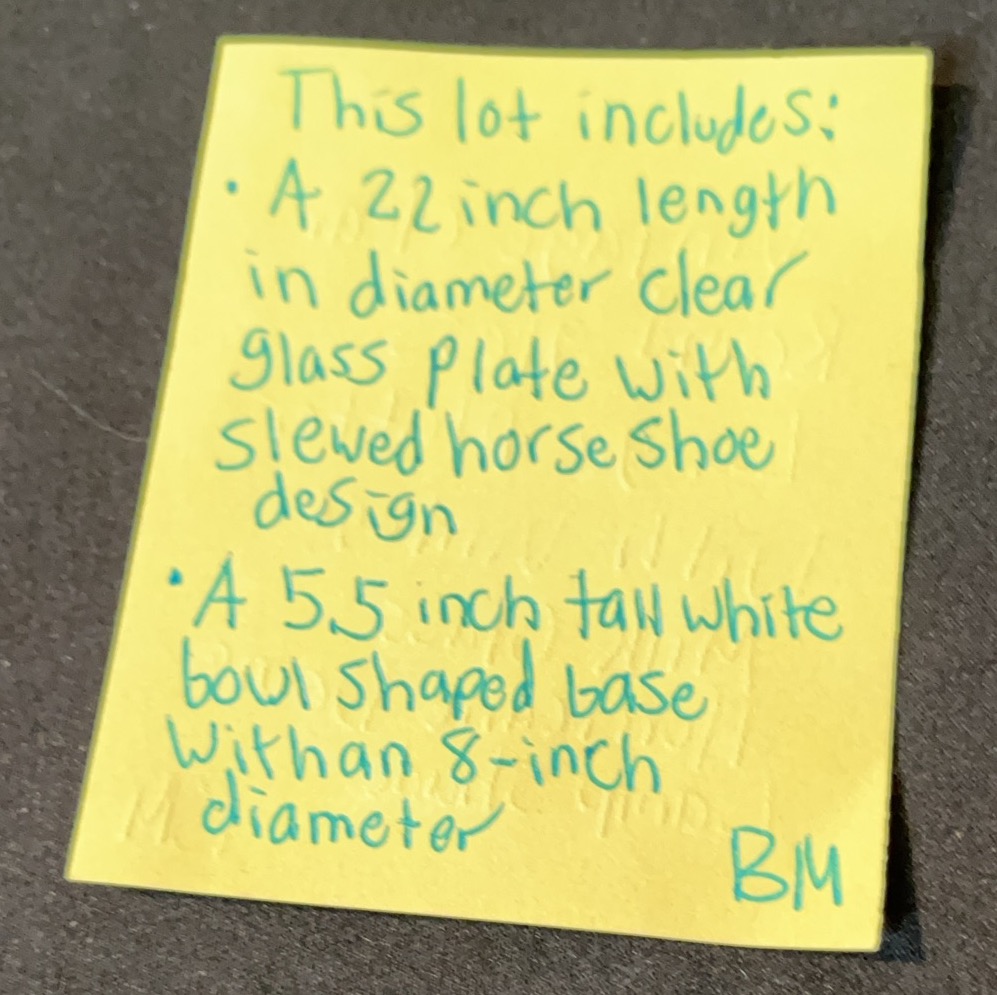 This lot includes:
• A 22 inch length
in diameter clear
glass plate with
slewed horse shoe
design
• A 5.5 inch tall white
bowl shaped base
with an 8-inch
diameter
BM